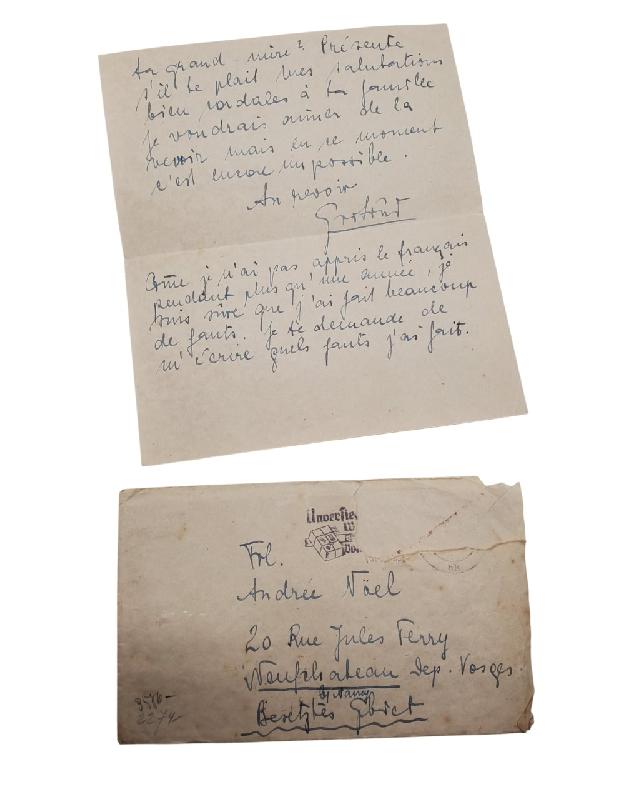 ta grand-mère? Présente
s'il te plait mes salutations
bien cordales à ta famille
je voudrais aimer de la
revoir mais en ce moment
c'est encore impossible.
Au revoir
Comme je n'ai pas appris le français
pendant plus qu'une année, je
suis sûre que j'ai fait beaucoup
de fauts. Je te demande de
m'écrire quels fauts j'ai fait.
Frl.
Andrée Nöel
20 Rue Jules Ferry
Neufchateau Dep. Vosges.
Nancy
Besetztes Gbiet
2274